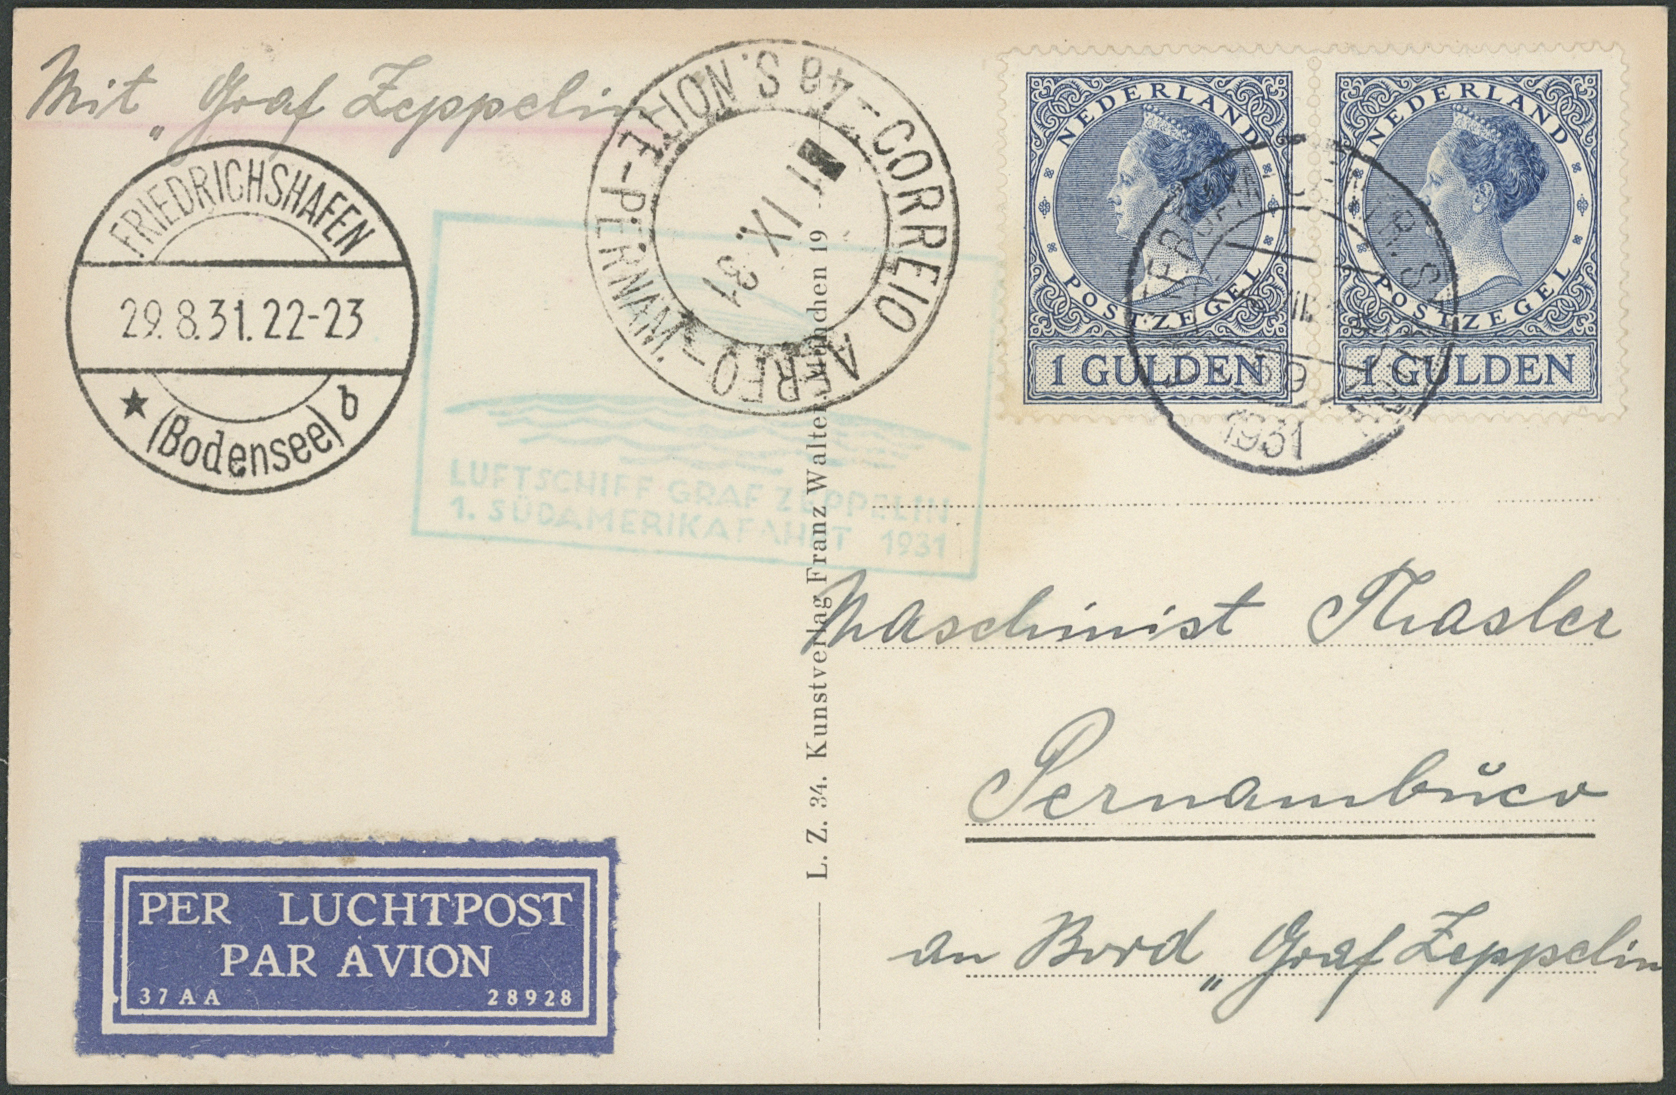 Mit „Graf Zeppelin
FRIEDRICHSHAFEN
29.8.31.22-23
★ (Bodensee) b
4a S. NORTE-PERNAM.
CORREIO AEREO
11 IX. 31
NEDERLAND
POSTZEGEL
1 GULDEN
NEDERLAND
POSTZEGEL
1 GULDEN
1931
LUFTSCHIFF GRAF ZEPPELIN
1. SÜDAMERIKAFAHRT 1931
L. Z. 34. Kunstverlag Franz Walter, München 19
Maschinist Thasler
Pernambŭco
an Bord „Graf Zeppelin
PER LUCHTPOST
PAR AVION
37AA 28928